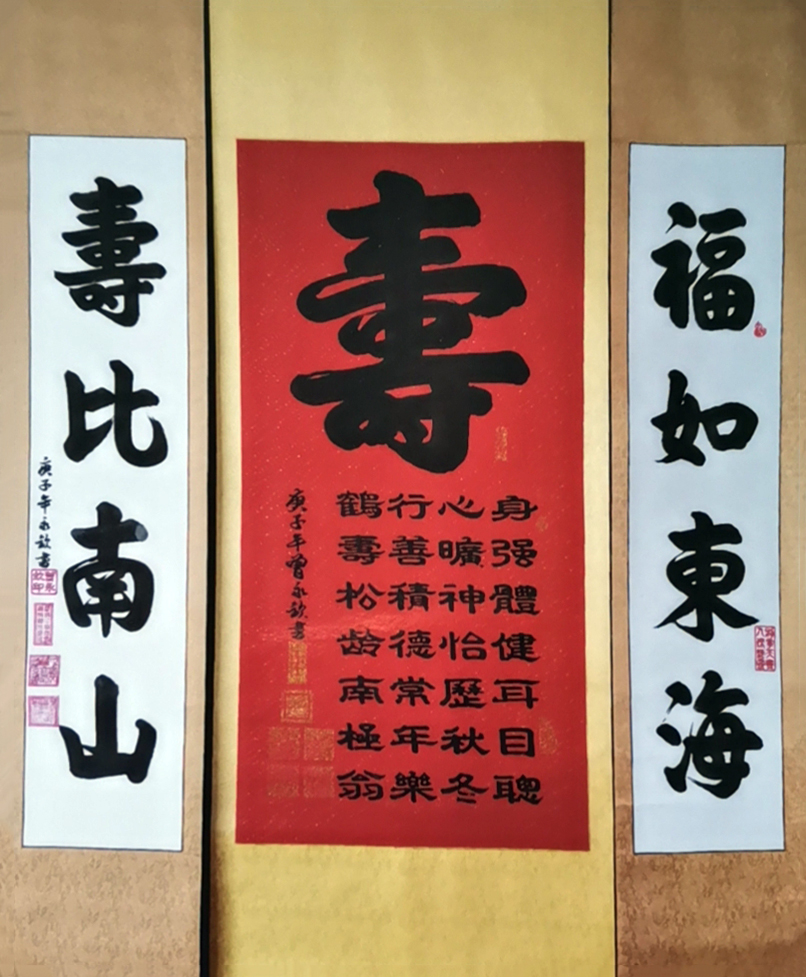 福如東海
壽
身强體健耳目聰
心曠神怡歷秋冬
行善積德常年樂
鶴壽松龄南極翁
庚子年曾永欽書
壽比南山
庚子年永欽書